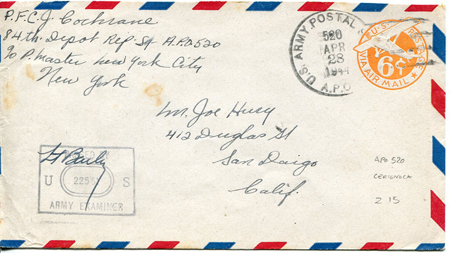 P.F.C. J. Cochrane
84th. Depot Rep. Sq A.P.O 520
c/o P. Master New York City
New York
U.S. ARMY POSTAL
520
APR
28
1944
A.P.O.
U.S. POSTAGE
6¢
VIA AIR MAIL
Mr. Joe Huey
412 Duglas St
San Daigo
Calif.
U 22 S
ARMY EXAMINER
APO 520
CERIGNOLA
Z 15